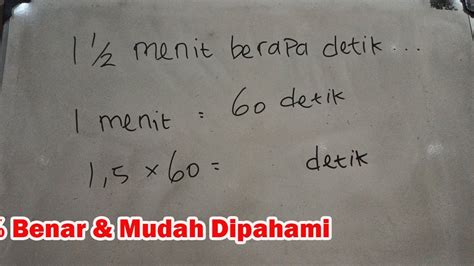 1 1/2 menit berapa detik ...
1 menit = 60 detik
1,5 × 60 = detik
% Benar & Mudah Dipahami